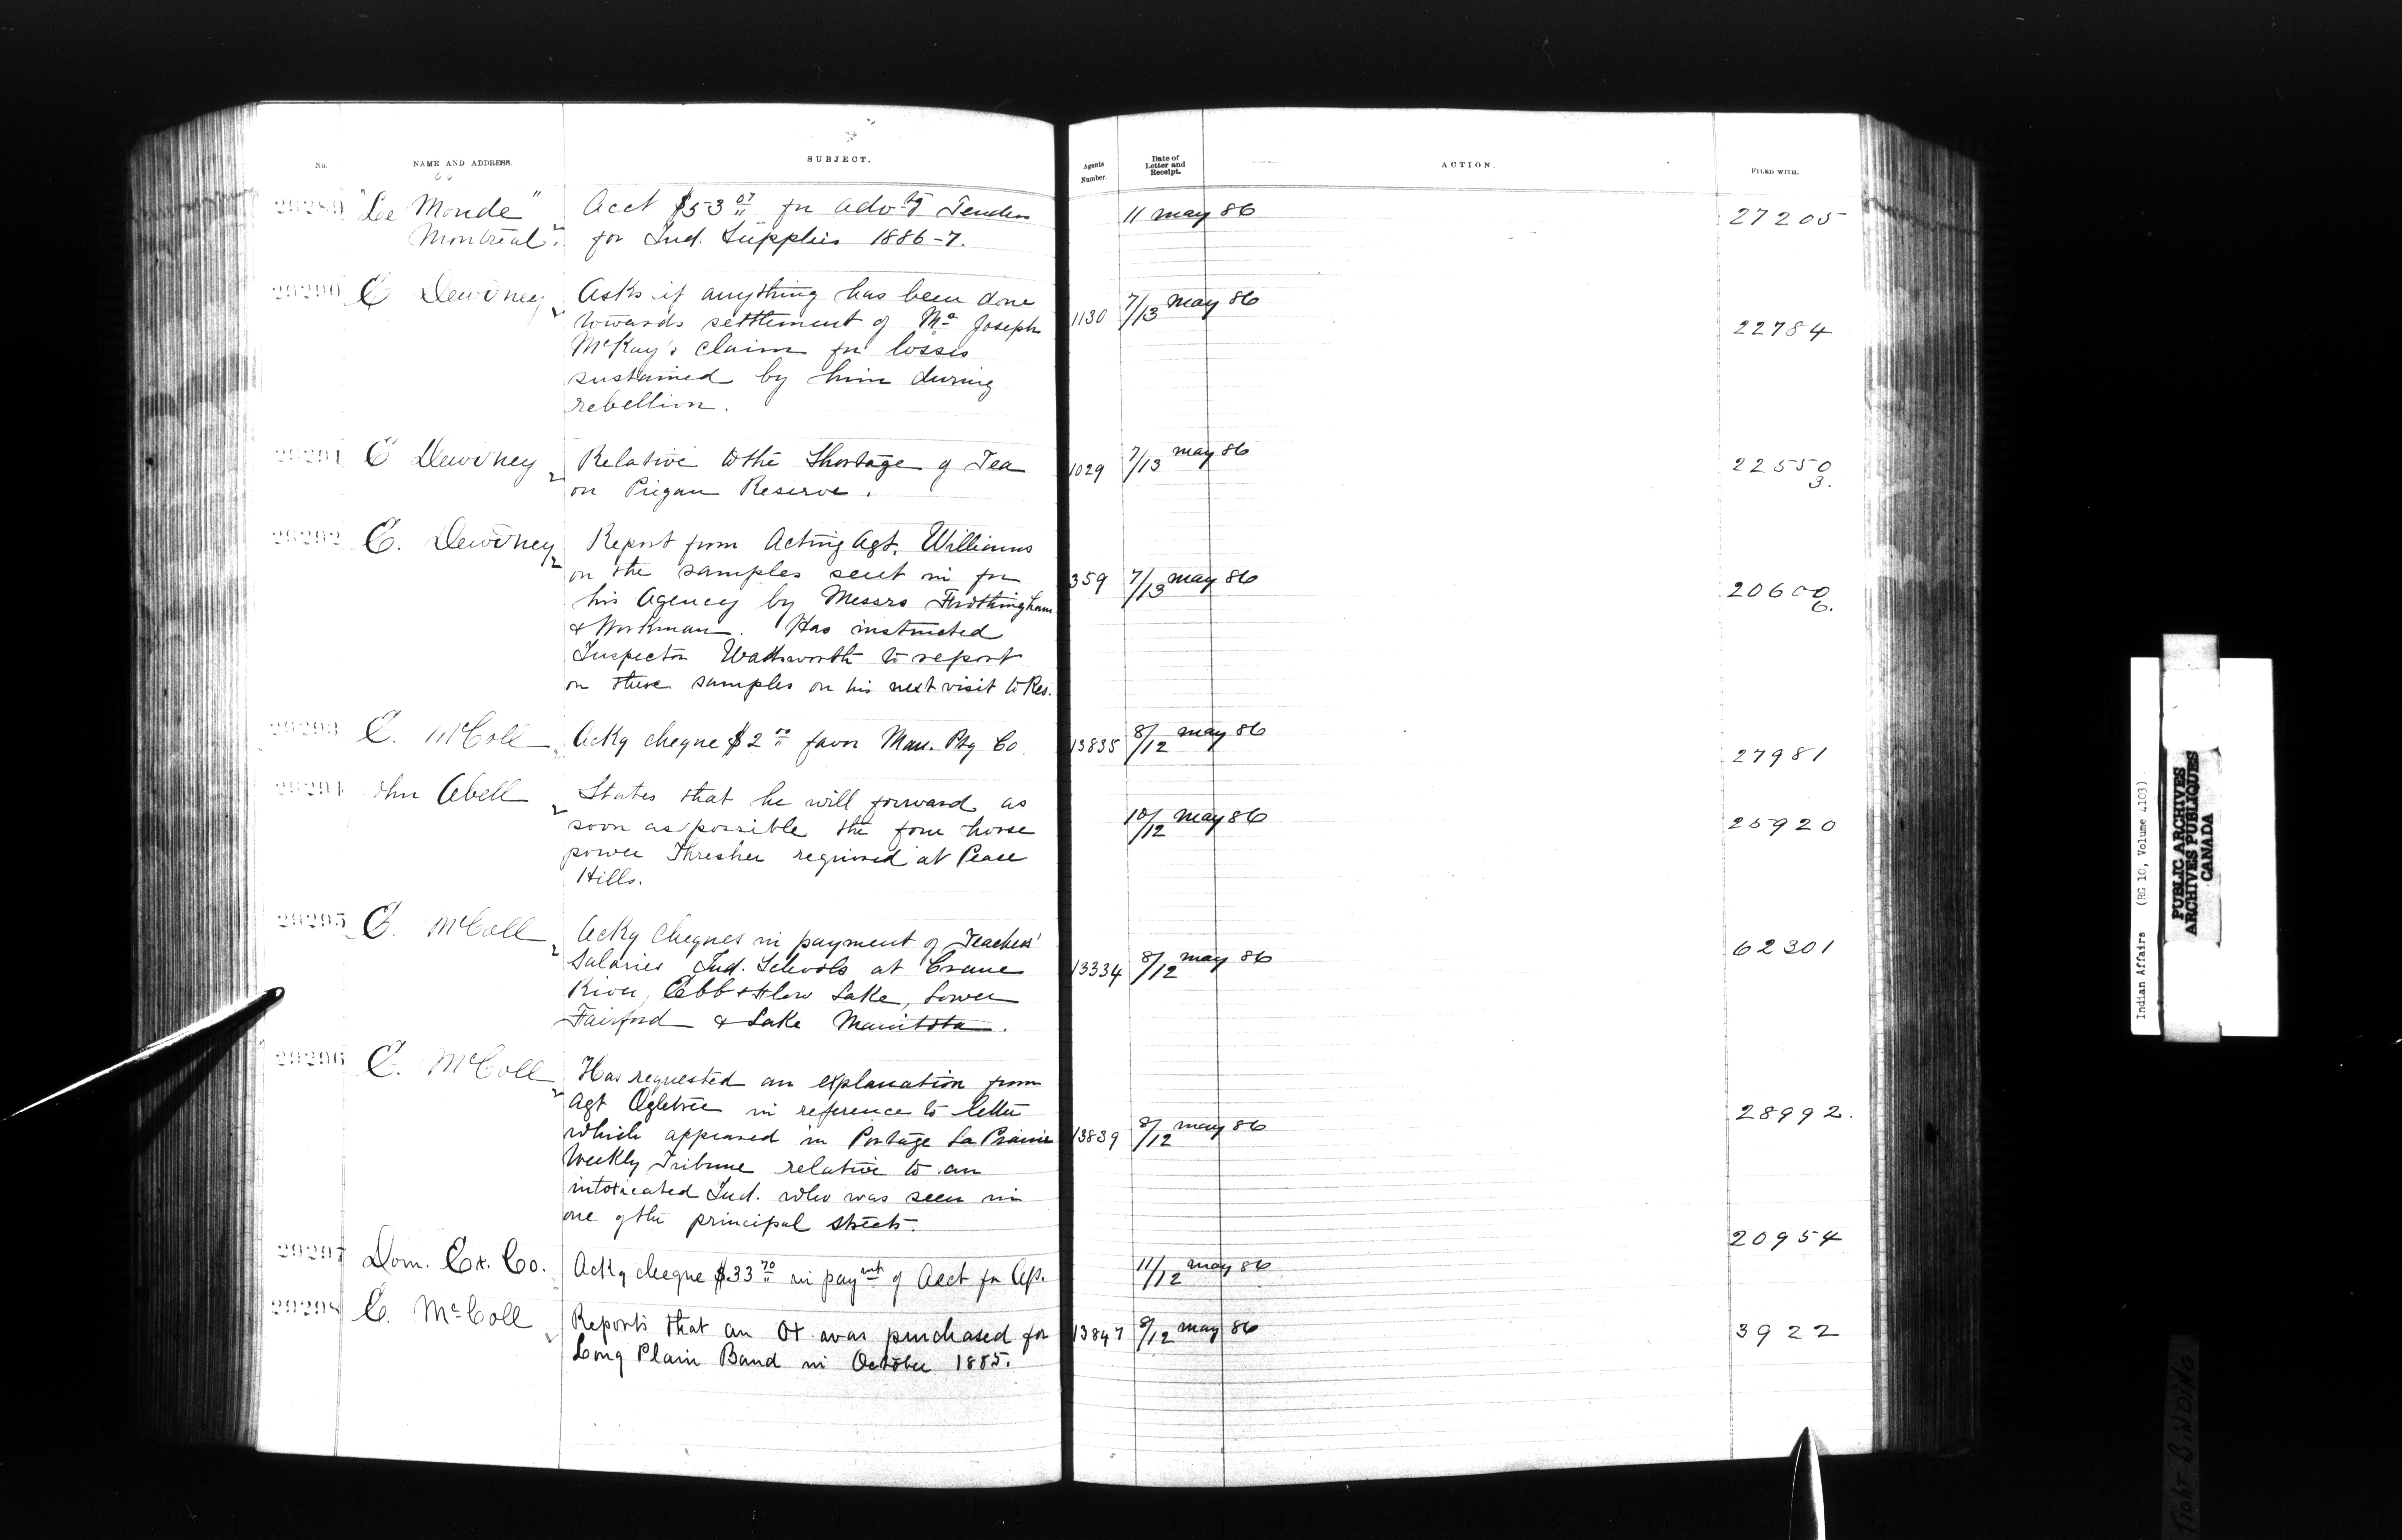 No. NAME AND ADDRESS. SUBJECT. Agents Number. Date of Letter and Receipt. ACTION. FILED WITH.
29289 "Le Monde" Acct $53 07 for advtg Tenders 11 may 86 27205
Montreal. for Ind. Supplies 1886-7.
29290 E Dewdney Asks if anything has been done 1130 7/13 may 86 22784
towards settlement of Mr Joseph
McKay's claim for losses
sustained by him during
rebellion.
29291 E Dewdney Relative to the Shortage of Tea 1029 7/13 may 86 22550
on Piegan Reserve. 3.
29292 E. Dewdney Report from Acting Agt. Williams
on the samples sent in for 359 7/13 may 86 20600
his Agency by Messrs Frothingham 6.
& Workman. Has instructed
Inspector Wadsworth to report
on these samples on his next visit to Res.
29293 E. McColl Ackg cheque $2 00 favor Man. Ptg Co. 13835 8/12 may 86 27981
29294 John Abell States that he will forward as 10/12 may 86 25920
soon as possible the four horse
power Thresher required at Peace
Hills.
29295 E. McColl Ackg cheques in payment of Teachers' 62301
Salaries Ind. Schools at Crane 13334 8/12 may 86
River, Ebb & Flow Lake, Lower
Fairford & Lake Manitoba.
29296 E. McColl Has requested an explanation from
Agt Ogletree in reference to letter 28992.
which appeared in Portage La Prairie 13839 8/12 may 86
Weekly Tribune relative to an
intoxicated Ind. who was seen in
one of the principal streets.
29297 Dom. Ex. Co. Ackg cheque $33 70 in paymt of Acct for Ap. 11/12 may 86 20954
29298 E. McColl Reports that an Ox was purchased for 13847 8/12 may 86 3922
Long Plain Band in October 1885.
Indian Affairs (RG 10, Volume 4103)
PUBLIC ARCHIVES
ARCHIVES PUBLIQUES
CANADA
TIGHT BINDING